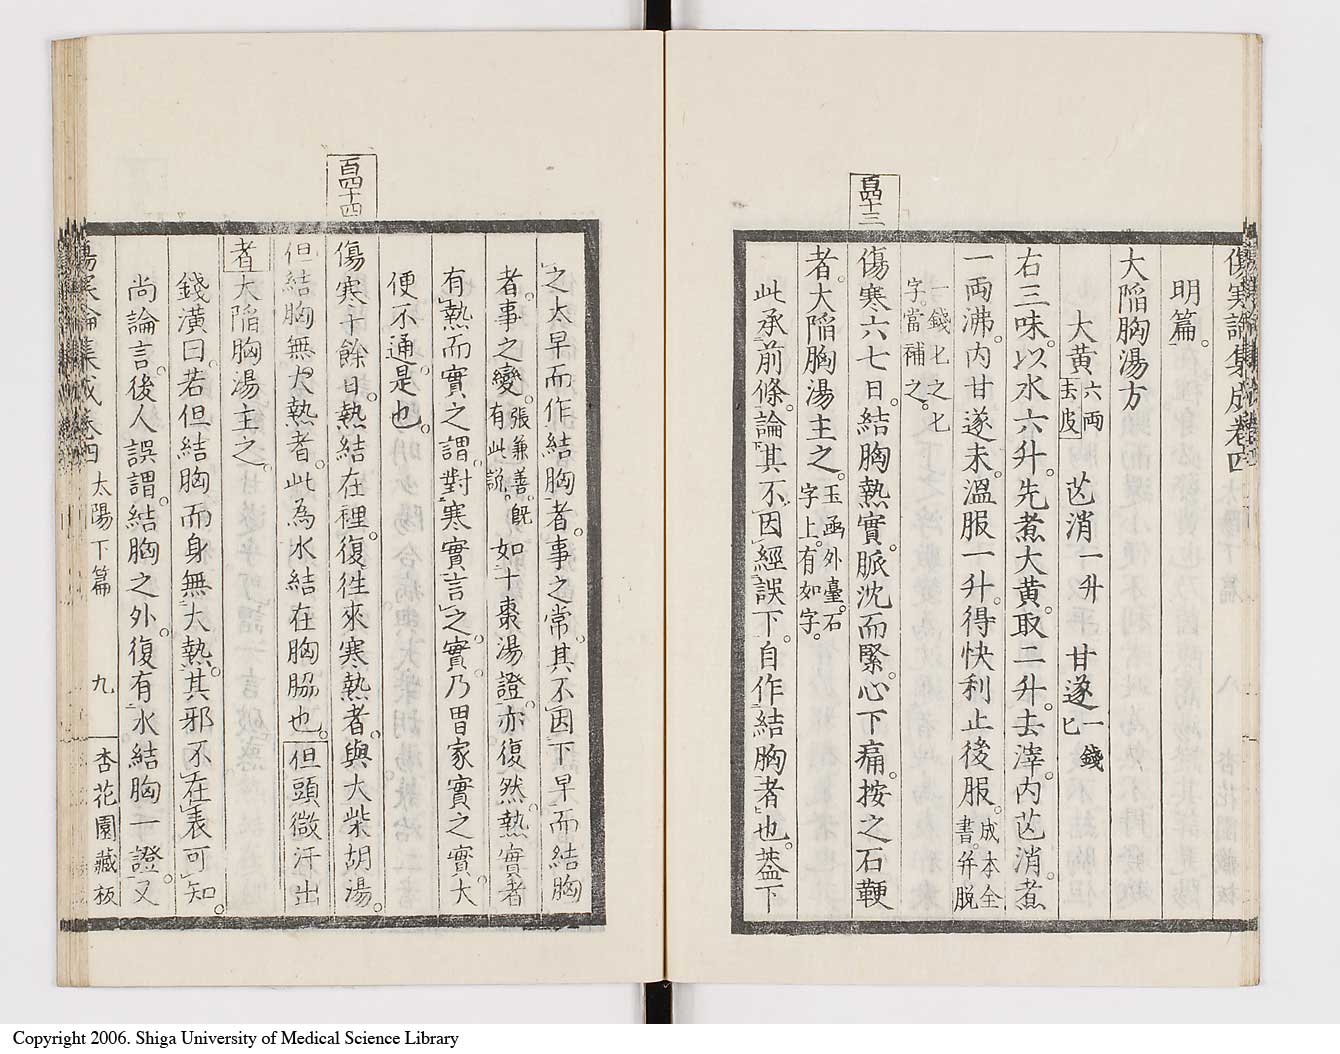 傷寒論集成卷四
明篇。
大陷胸湯方
大黃六兩去皮 芒消一升 甘遂一錢匕
右三味。以水六升。先煮大黃。取二升。去滓。內芒消。煮
一兩沸。內甘遂末。溫服一升。得快利止後服。成本全書。并脫
一錢匕之七字。當補之。
百四十三
傷寒六七日。結胸熱實。脈沈而緊。心下痛。按之石鞕
者。大陷胸湯主之。玉函外臺。石字上。有如字。
此承前條。論其不因經誤下。自作結胸者也。蓋下
之太早而作結胸者。事之常。其不因下早而結胸
者。事之變。張兼善。既有此說。如十棗湯證。亦復然。熱實者
有熱而實之謂。對寒實言之。實乃胃家實之實。大
便不通。是也。
百四十四
傷寒十餘日。熱結在裡。復徃來寒熱者。與大柴胡湯。
但結胸無大熱者。此為水結在胸脇也。但頭微汗出
者大陷胸湯主之。
錢潢曰。若但結胸而身無大熱。其邪不在表可知。
尚論言。後人誤謂。結胸之外。復有水結胸一證。又
傷寒論集成卷四 太陽下篇 九 杏花園藏板
Copyright 2006. Shiga University of Medical Science Library